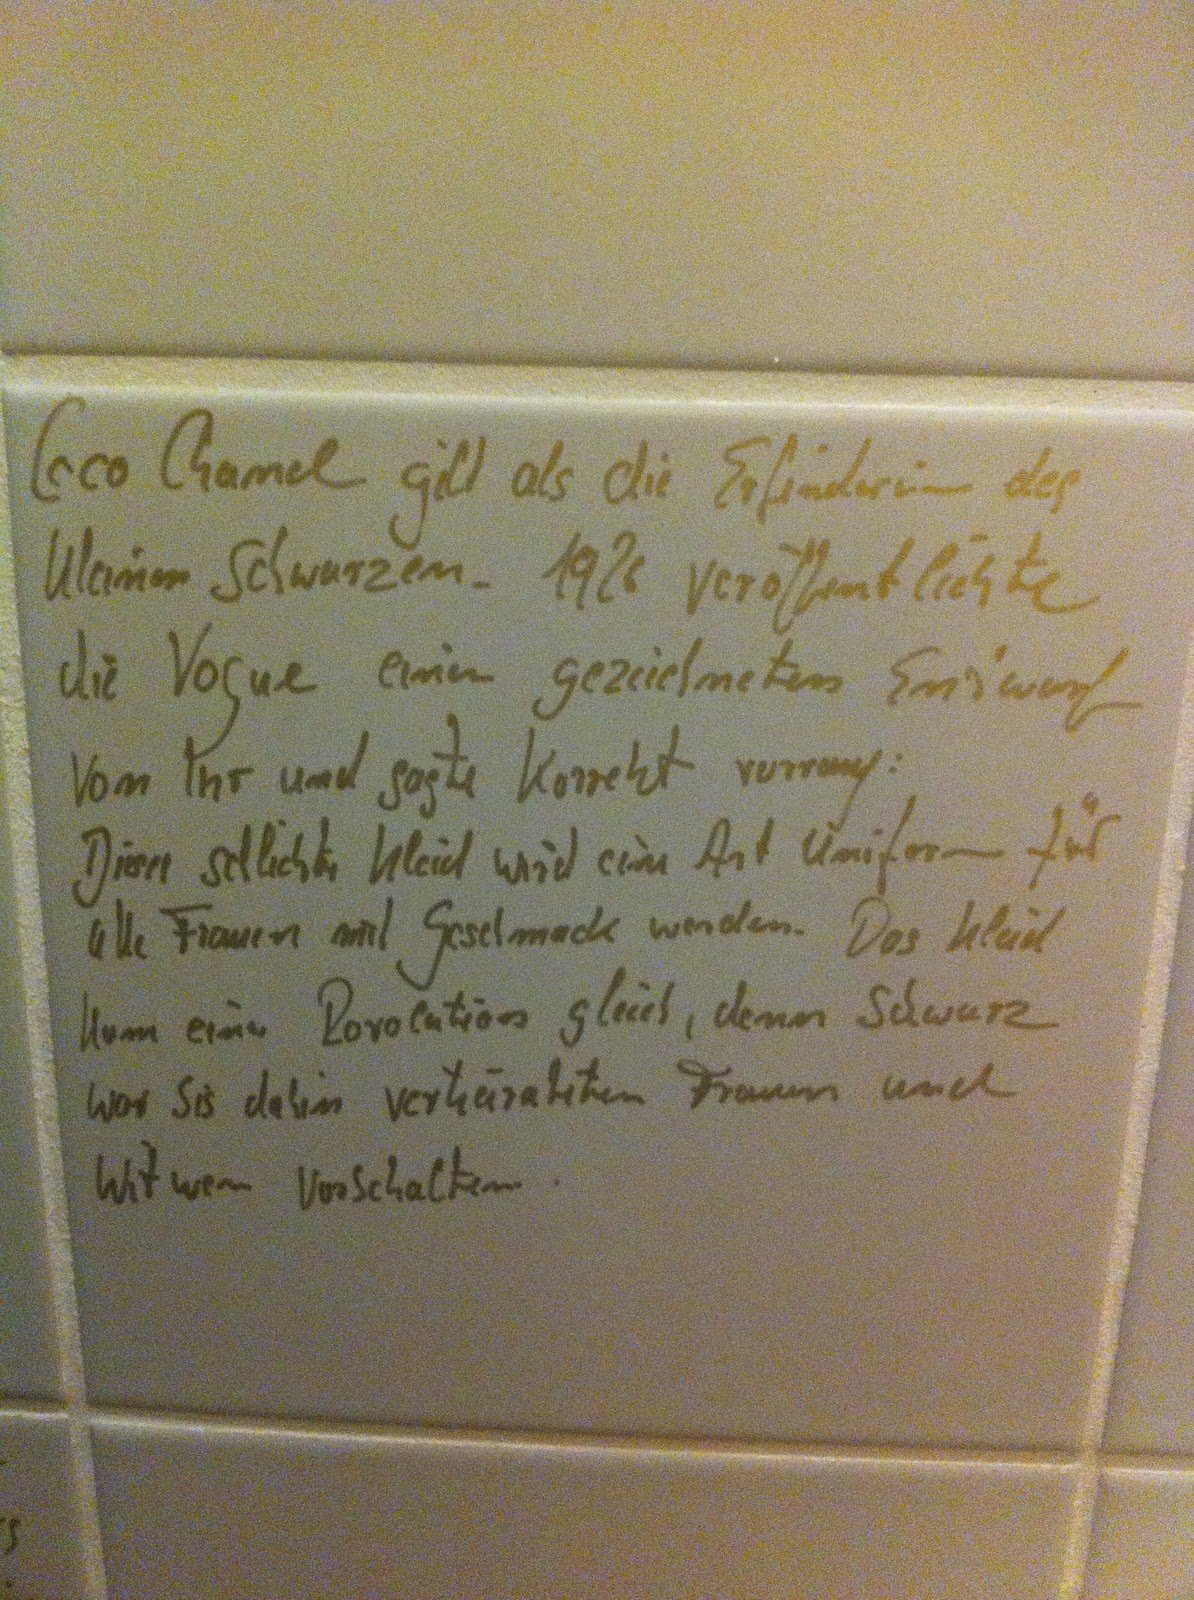 Coco Chanel gilt als die Erfinderin des
kleinen Schwarzen. 1926 veröffentlichte
die Vogue einen gezeichneten Entwurf
von Ihr und sagte Korrekt vorraus:
Dieses schlichte Kleid wird eine Art Uniform für
alle Frauen mit Geschmack werden. Das Kleid
kam einer Revolution gleich, denn Schwarz
war bis dahin verheirateten Frauen und
Witwen vorbehalten.